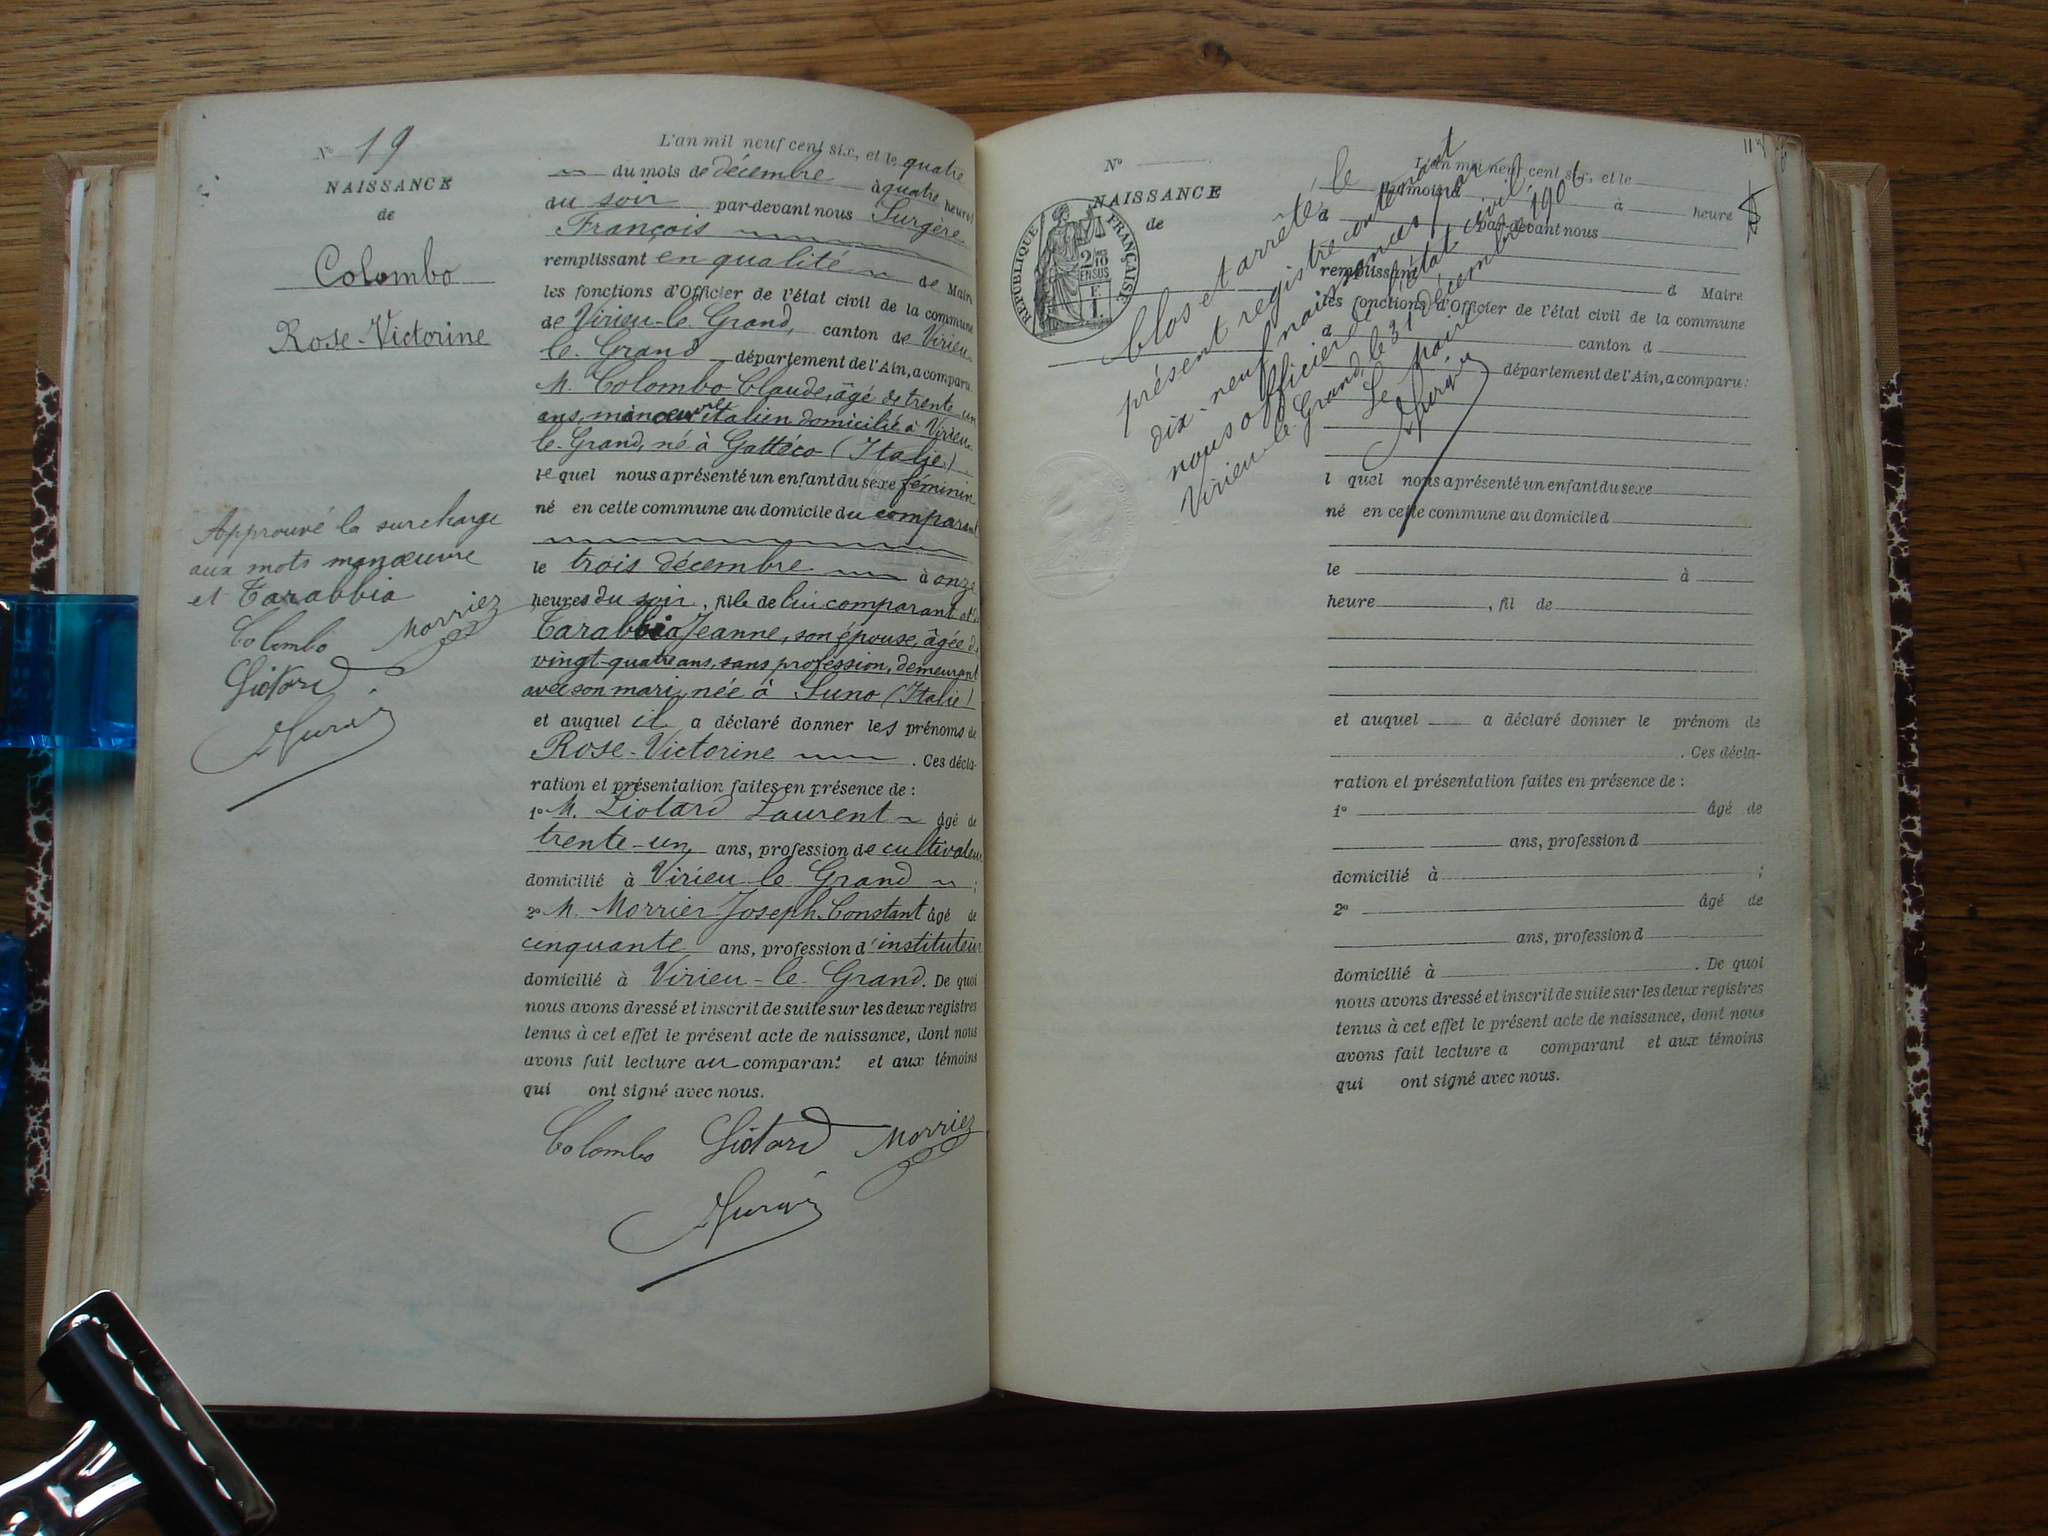 N° 19
NAISSANCE
de
Colombo
Rose-Victorine
Approuvé la surcharge
aux mots manœuvre
et Tarabbia
Colombo Morrier
Liotard
L'an mil neuf cent six, et le quatre
du mois de décembre à quatre heures
du soir par-devant nous Surgère
François
remplissant en qualité de Maire
les fonctions d'Officier de l'état civil de la commune
de Virieu-le-Grand, canton de Virieu-
le-Grand département de l'Ain, a comparu:
M. Colombo Claude, âgé de trente-un
ans, manœuvre italien domicilié à Virieu-
le-Grand, né à Gattéco (Italie)
lequel nous a présenté un enfant du sexe féminin
né en cette commune au domicile du comparant
le trois décembre à onze
heures du soir, fille de lui comparant et de
Tarabbia Jeanne, son épouse, âgée de
vingt-quatre ans, sans profession, demeurant
avec son mari, née à Suno (Italie)
et auquel il a déclaré donner les prénoms de
Rose-Victorine . Ces décla-
ration et présentation faites en présence de :
1° M. Liotard Laurent âgé de
trente-un ans, profession de cultivateur
domicilié à Virieu-le-Grand ;
2° M. Morrier Joseph-Constant âgé de
cinquante ans, profession d'instituteur
domicilié à Virieu-le-Grand. De quoi
nous avons dressé et inscrit de suite sur les deux registres
tenus à cet effet le présent acte de naissance, dont nous
avons fait lecture au comparant et aux témoins
qui ont signé avec nous.
Colombo Liotard Morrier
N°
NAISSANCE
de
RÉPUBLIQUE FRANÇAISE
2/10 EN SUS
F 1
Clos et arrêté le
présent registre contenant
dix-neuf naissances par
nous officier de l'état civil,
Virieu-le-Grand, le 31 décembre 1906
Le Maire
L'an mil neuf cent six, et le
du mois d à heure
par-devant nous
remplissant d Maire
les fonctions d'Officier de l'état civil de la commune
canton d
département de l'Ain, a comparu:
l quel nous a présenté un enfant du sexe
né en cette commune au domicile d
le à
heure , fil de
et auquel a déclaré donner le prénom de
. Ces décla-
ration et présentation faites en présence de :
1° âgé de
ans, profession d
domicilié à ;
2° âgé de
ans, profession d
domicilié à . De quoi
nous avons dressé et inscrit de suite sur les deux registres
tenus à cet effet le présent acte de naissance, dont nous
avons fait lecture a comparant et aux témoins
qui ont signé avec nous.